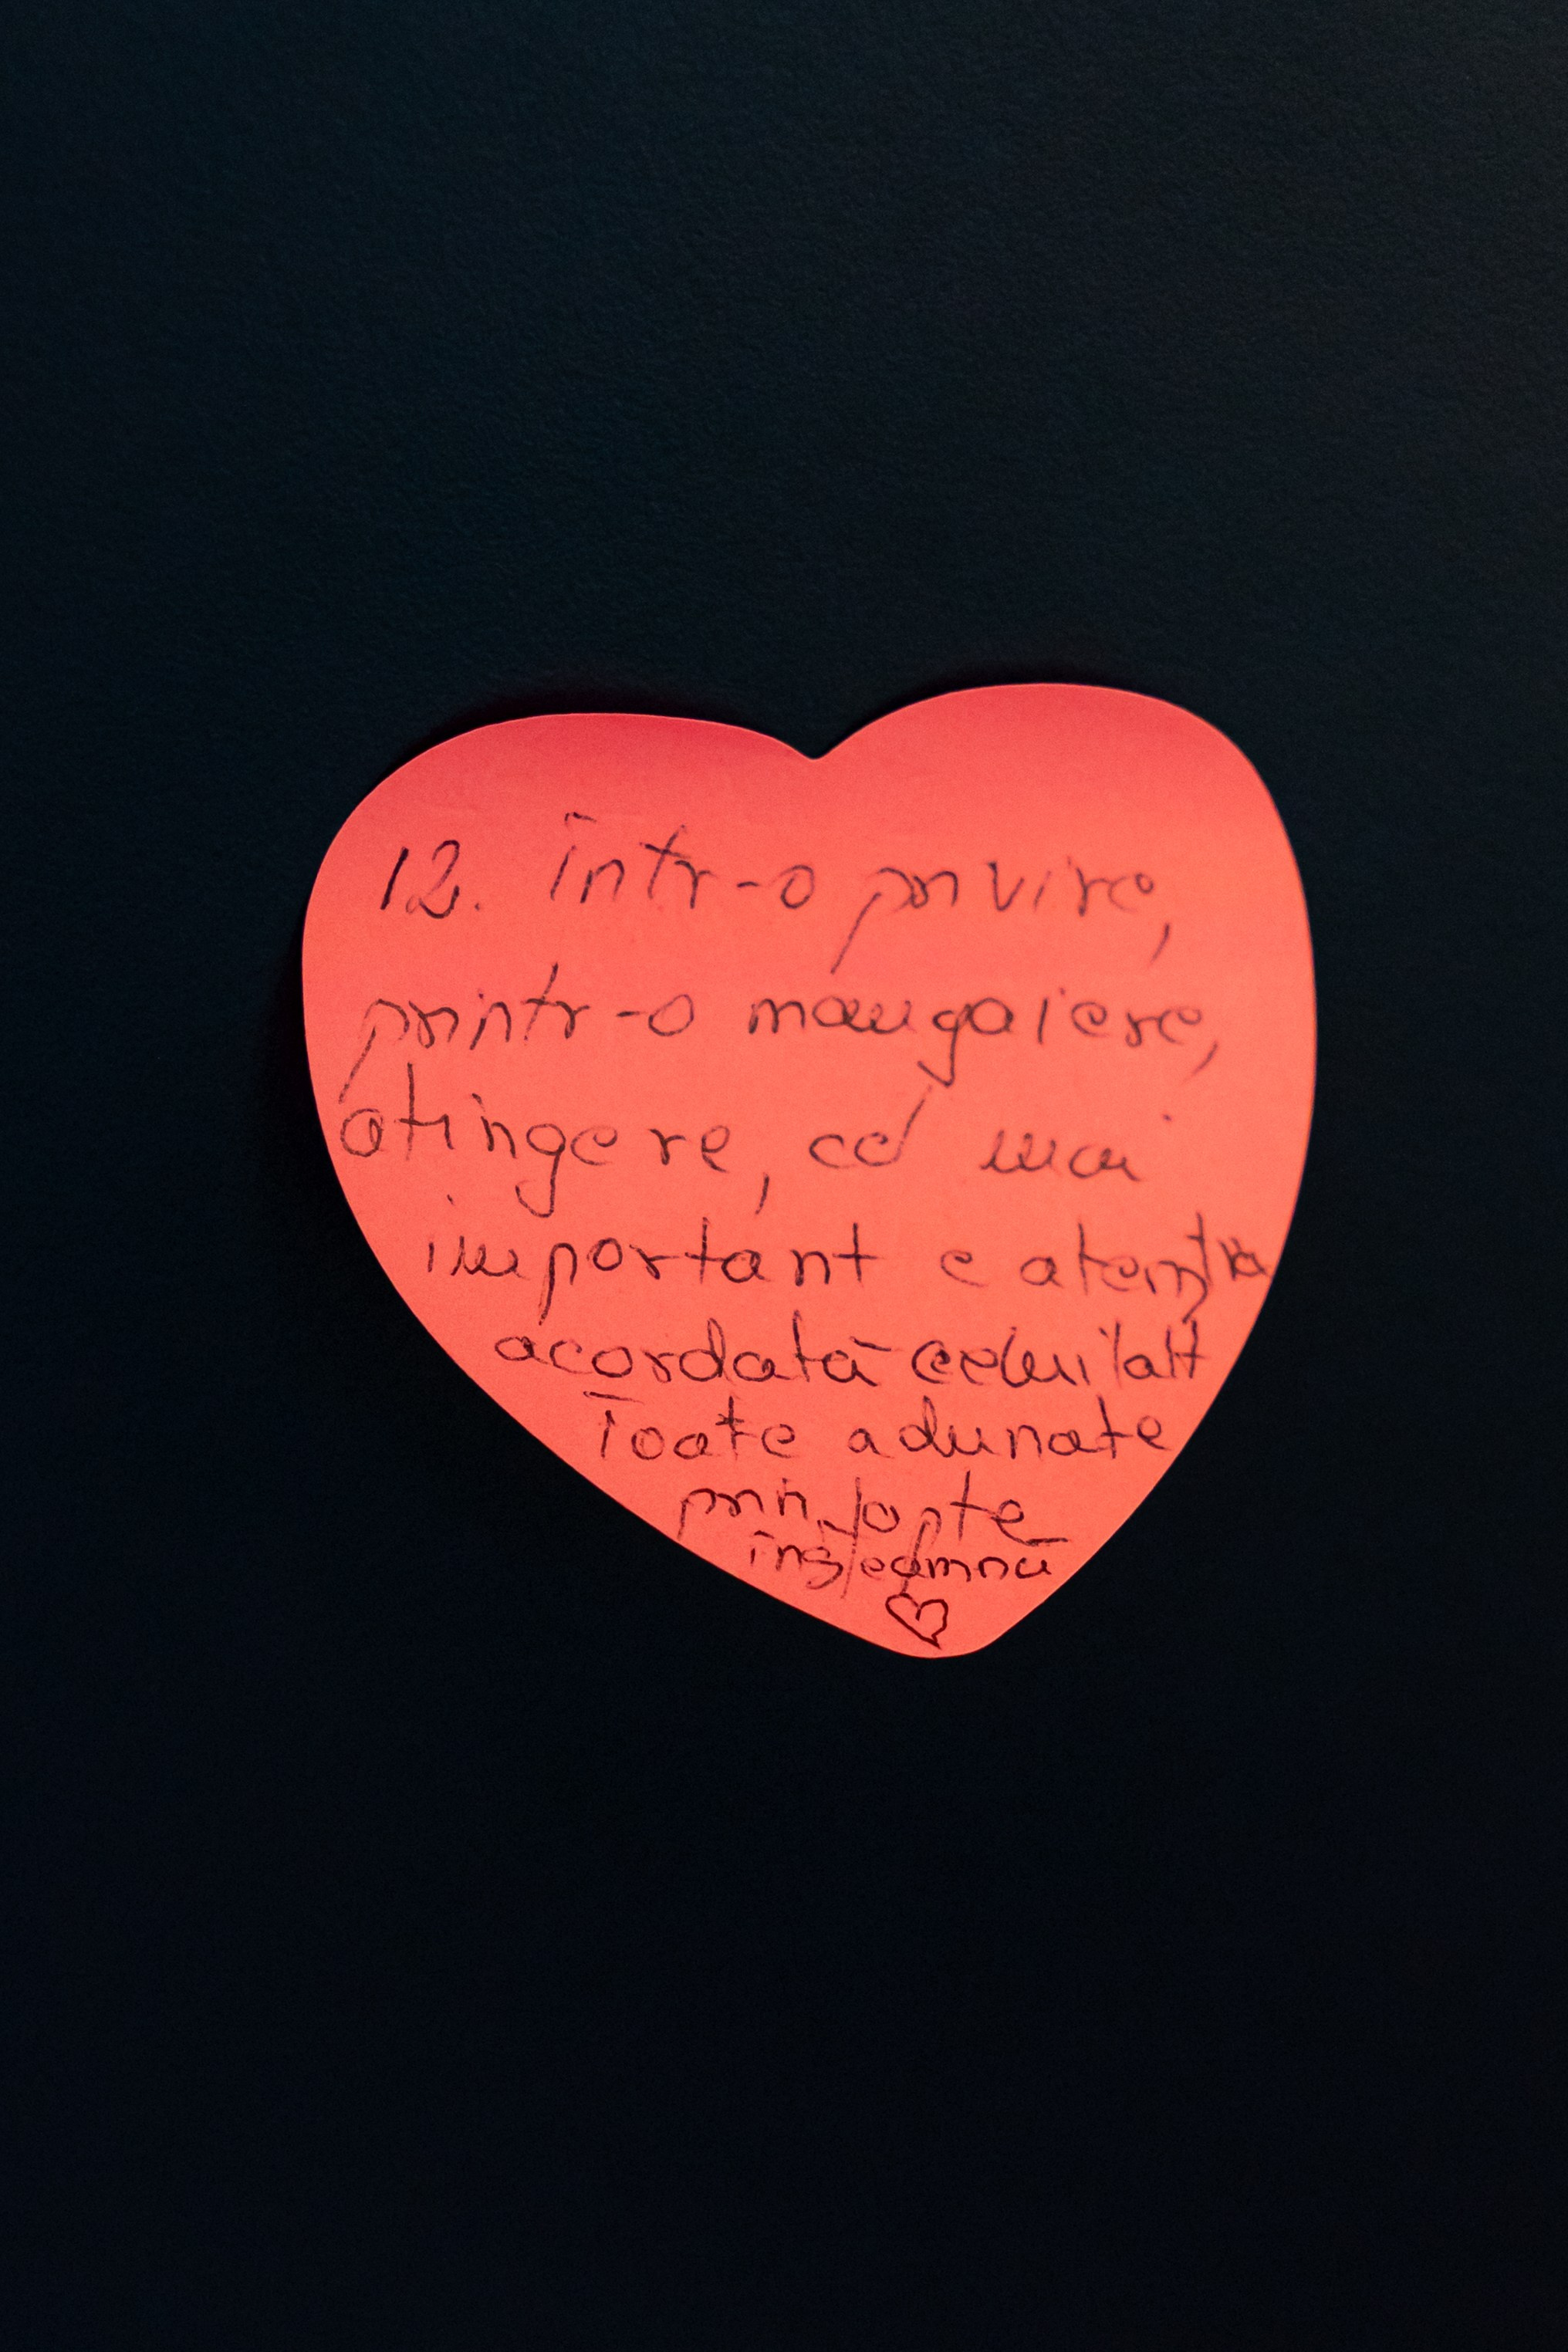 12. Într-o privire,
printr-o mangaiere,
atingere, cel mai
important e atenția
acordată celuilalt
Toate adunate
prin fapte
înseamnă